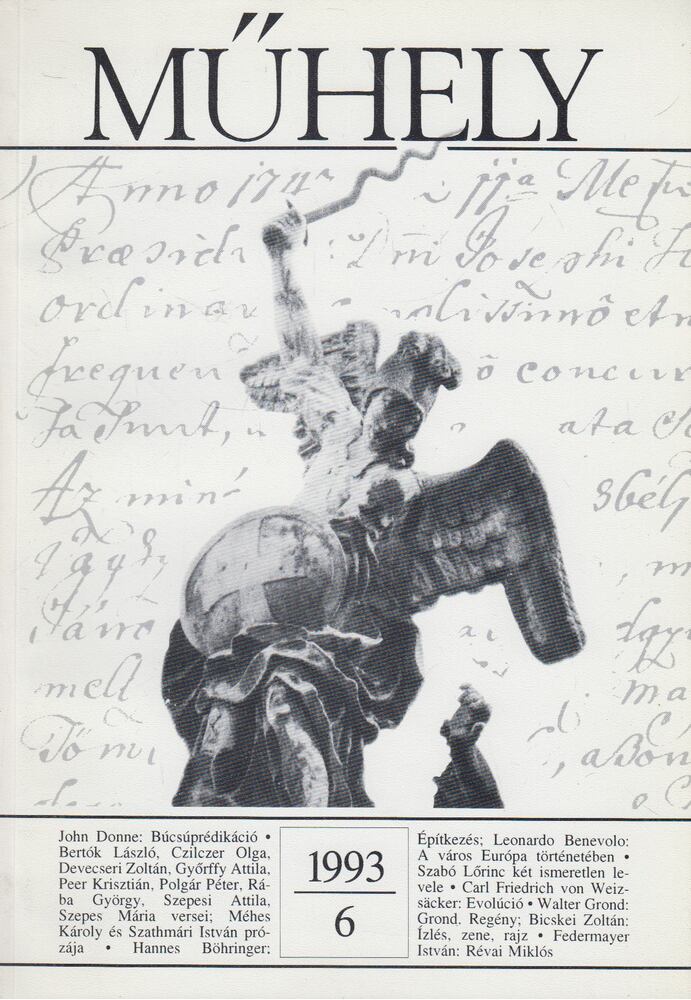 MŰHELY
Anno 174
Præsid
ordinar
frequen õ concur
ata
Az min
mell ma
John Donne: Búcsúprédikáció •
Bertók László, Czilczer Olga,
Devecseri Zoltán, Győrffy Attila,
Peer Krisztián, Polgár Péter, Rá-
ba György, Szepesi Attila,
Szepes Mária versei; Méhes
Károly és Szathmári István pró-
zája • Hannes Böhringer:
1993
6
Építkezés; Leonardo Benevolo:
A város Európa történetében •
Szabó Lőrinc két ismeretlen le-
vele • Carl Friedrich von Weiz-
säcker: Evolúció • Walter Grond:
Grond. Regény; Bicskei Zoltán:
Ízlés, zene, rajz • Federmayer
István: Révai Miklós